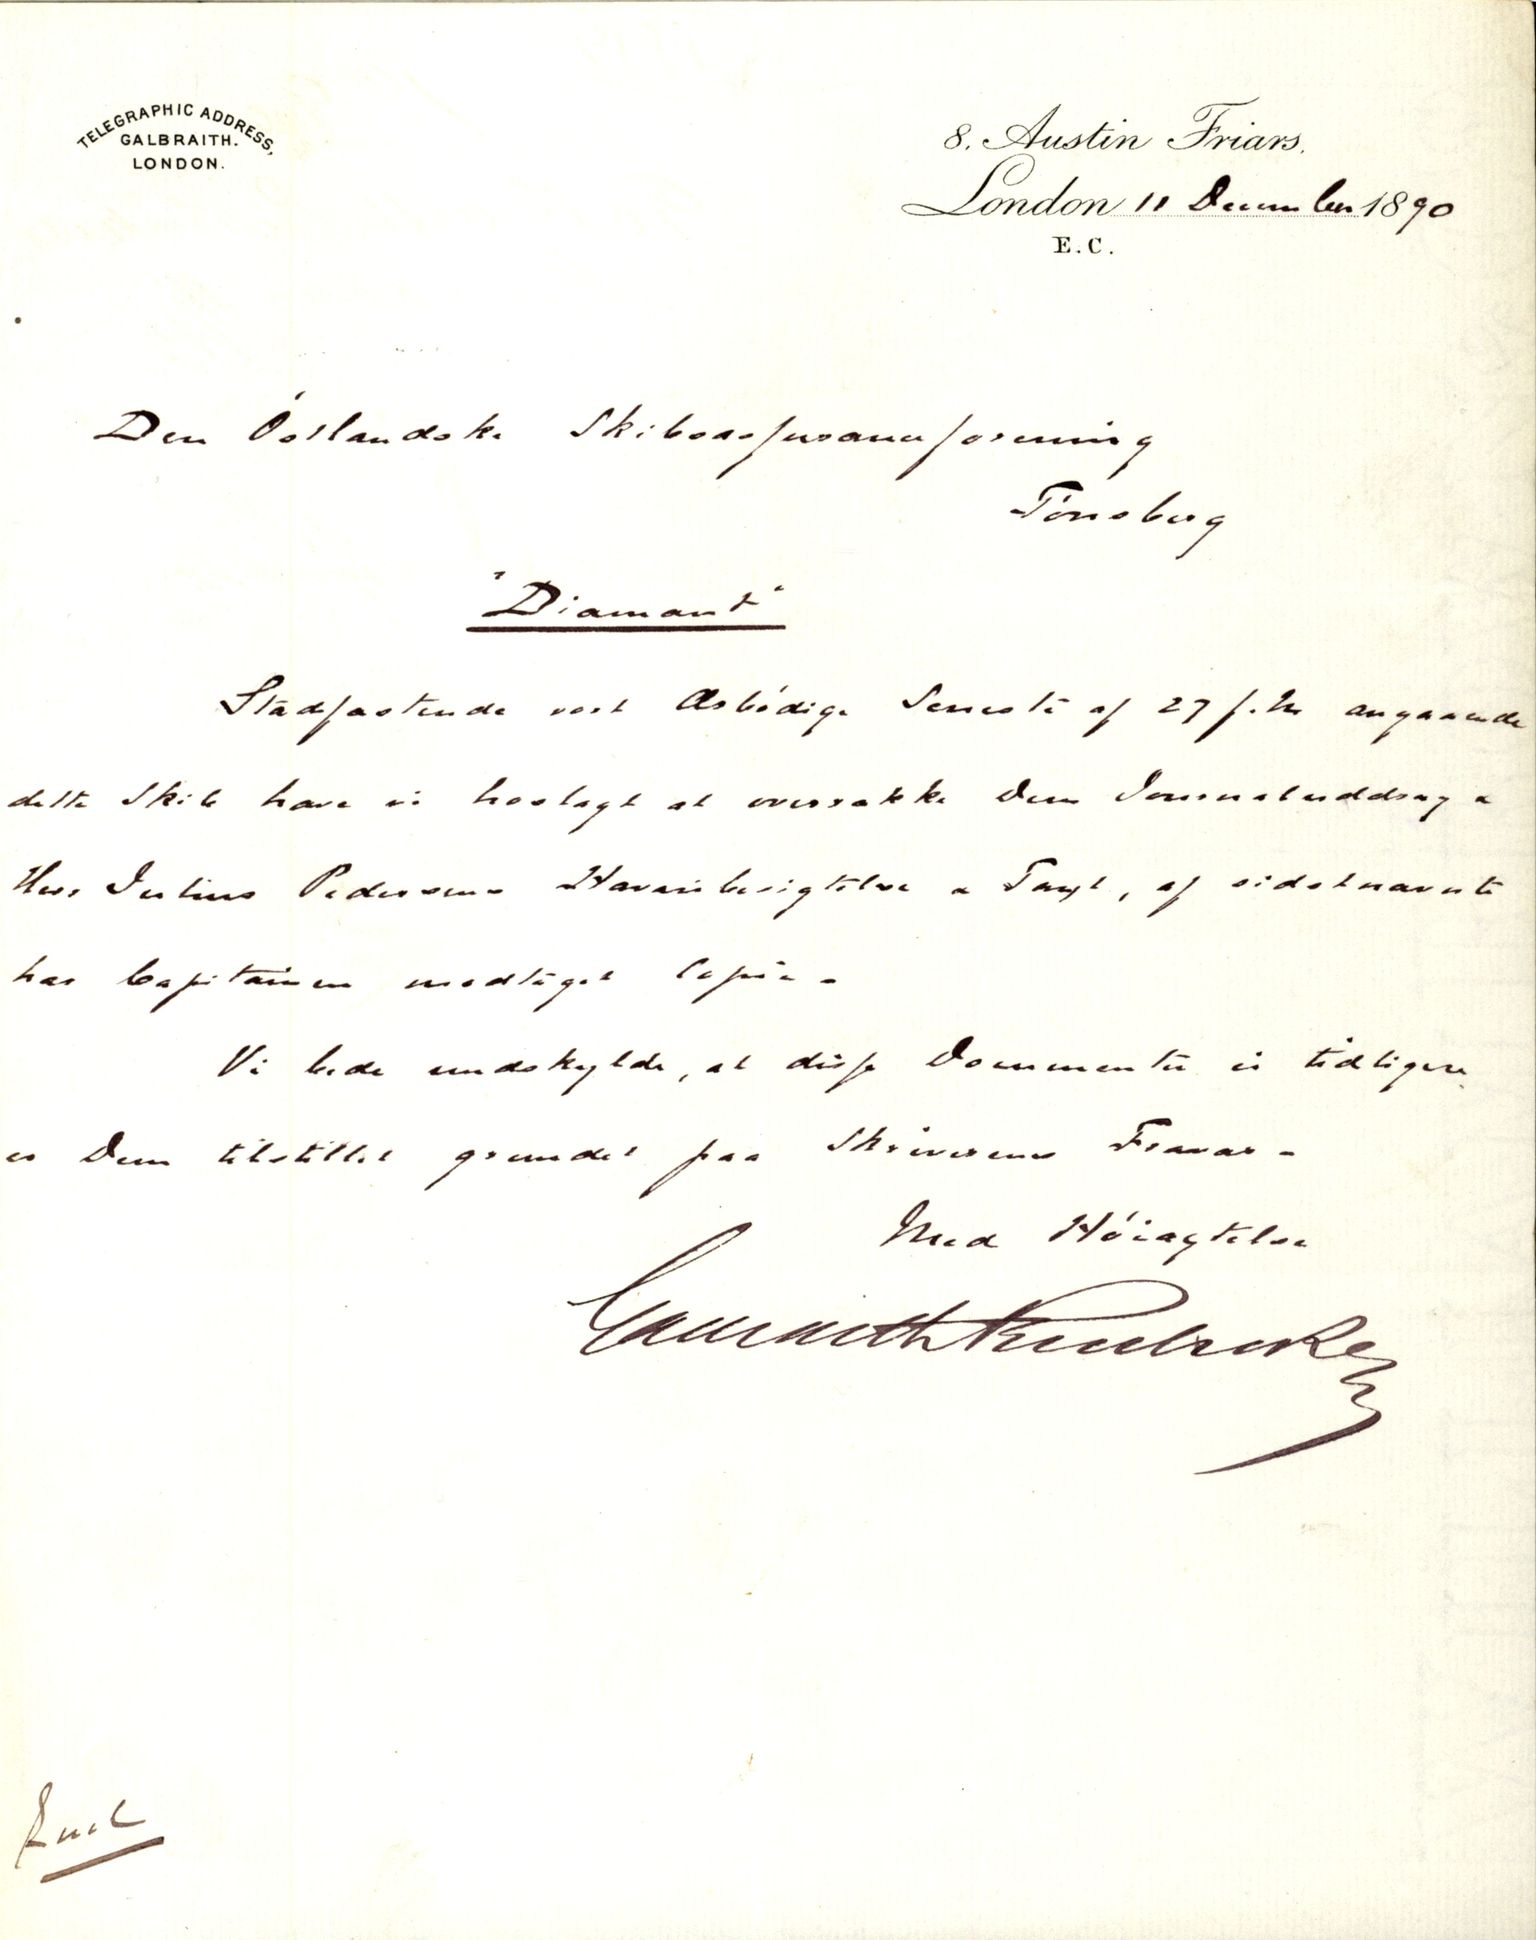 TELEGRAPHIC ADDRESS,
GALBRAITH.
LONDON.
8. Austin Friars.
London 11 December 1890
E.C.
Den Óstlandske Skibsassuranceforening
Tönsberg
"Diamant"
Stadfæstende vort Ærbödige Seneste af 27 f. M. angaaende
dette Skib have vi hoslagt at overrække Dem Journaluddrag &
Herr Julius Pedersens Havaribesigtelse & Taxt, af sidstnævnte
har Capitainen modtaget Copie -
Vi bede undskylde, at disse Documenter ei tidligere
er Dem tilstillet grundet paa Skriverens Fravær -
Med Höiagtelse
Galbraith Pembroke
Encl